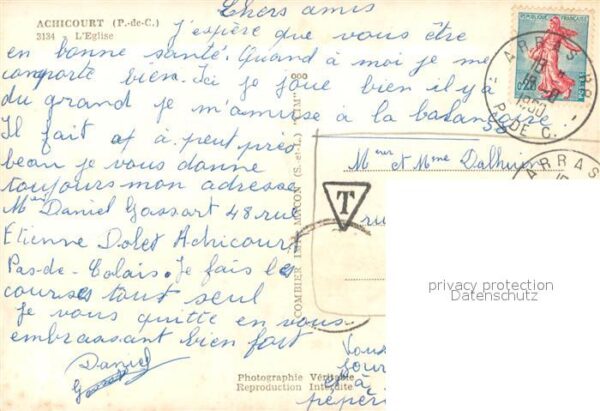 ACHICOURT (P.-de-C.)
3134 L'Eglise
Chers amis
j'espère que vous être
en bonne santé. Quand à moi je me
comporte bien. Ici je joue bien il y à
du grand je m'amuse à la balançoire
Il fait à peut près
beau je vous donne
toujours mon adresse
Daniel Gossart 48 rue
Etienne Dolet Achicourt
Pas-de-Calais. Je fais les
courses tout seul
Je vous quitte en vous
embrassant bien fort
Daniel
Photographie Véritable
Reproduction Interdite
COMBIER IMP. MACON (S.-et-L.) "CIM"
REPUBLIQUE FRANÇAISE
0,20
ARRAS RP
18 -8
1960
P. DE C.
50
Mr et Mme Dalhuin
T
ru
ARRAS
privacy protection
Datenschutz
Vous
jour
et à
pépèr